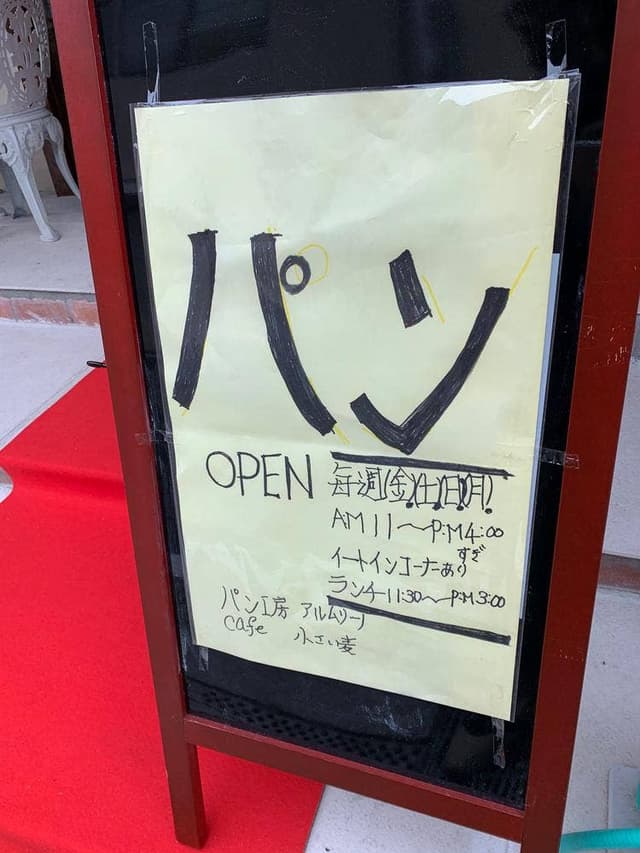 パン
OPEN 毎週(金)(土)(日)(月)
AM11〜P:M4:00
すぎ
イートインコーナーあり
ランチ11:30〜P:M3:00
パン工房 アルムリーノ
cafe 小さい麦